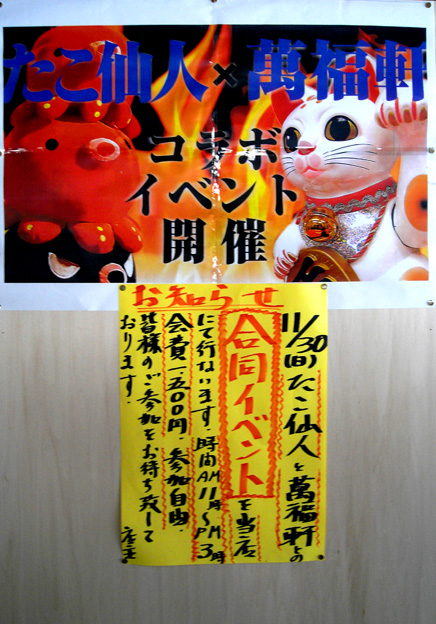 たこ仙人×萬福軒
コラボ
イベント
開催
お知らせ
11/30(日)たこ仙人と萬福軒との
合同イベントを当店
にて行ないます。時間AM11時〜PM3時
会費一、五〇〇円。参加自由。
皆様のご参加をお待ち致して
おります。
店主